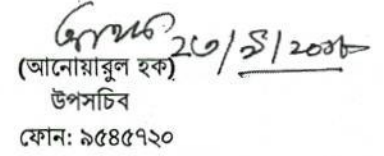 ২৩/৯/২০১৮
(আনোয়ারুল হক)
উপসচিব
ফোন: ৯৫৪৫৭২০